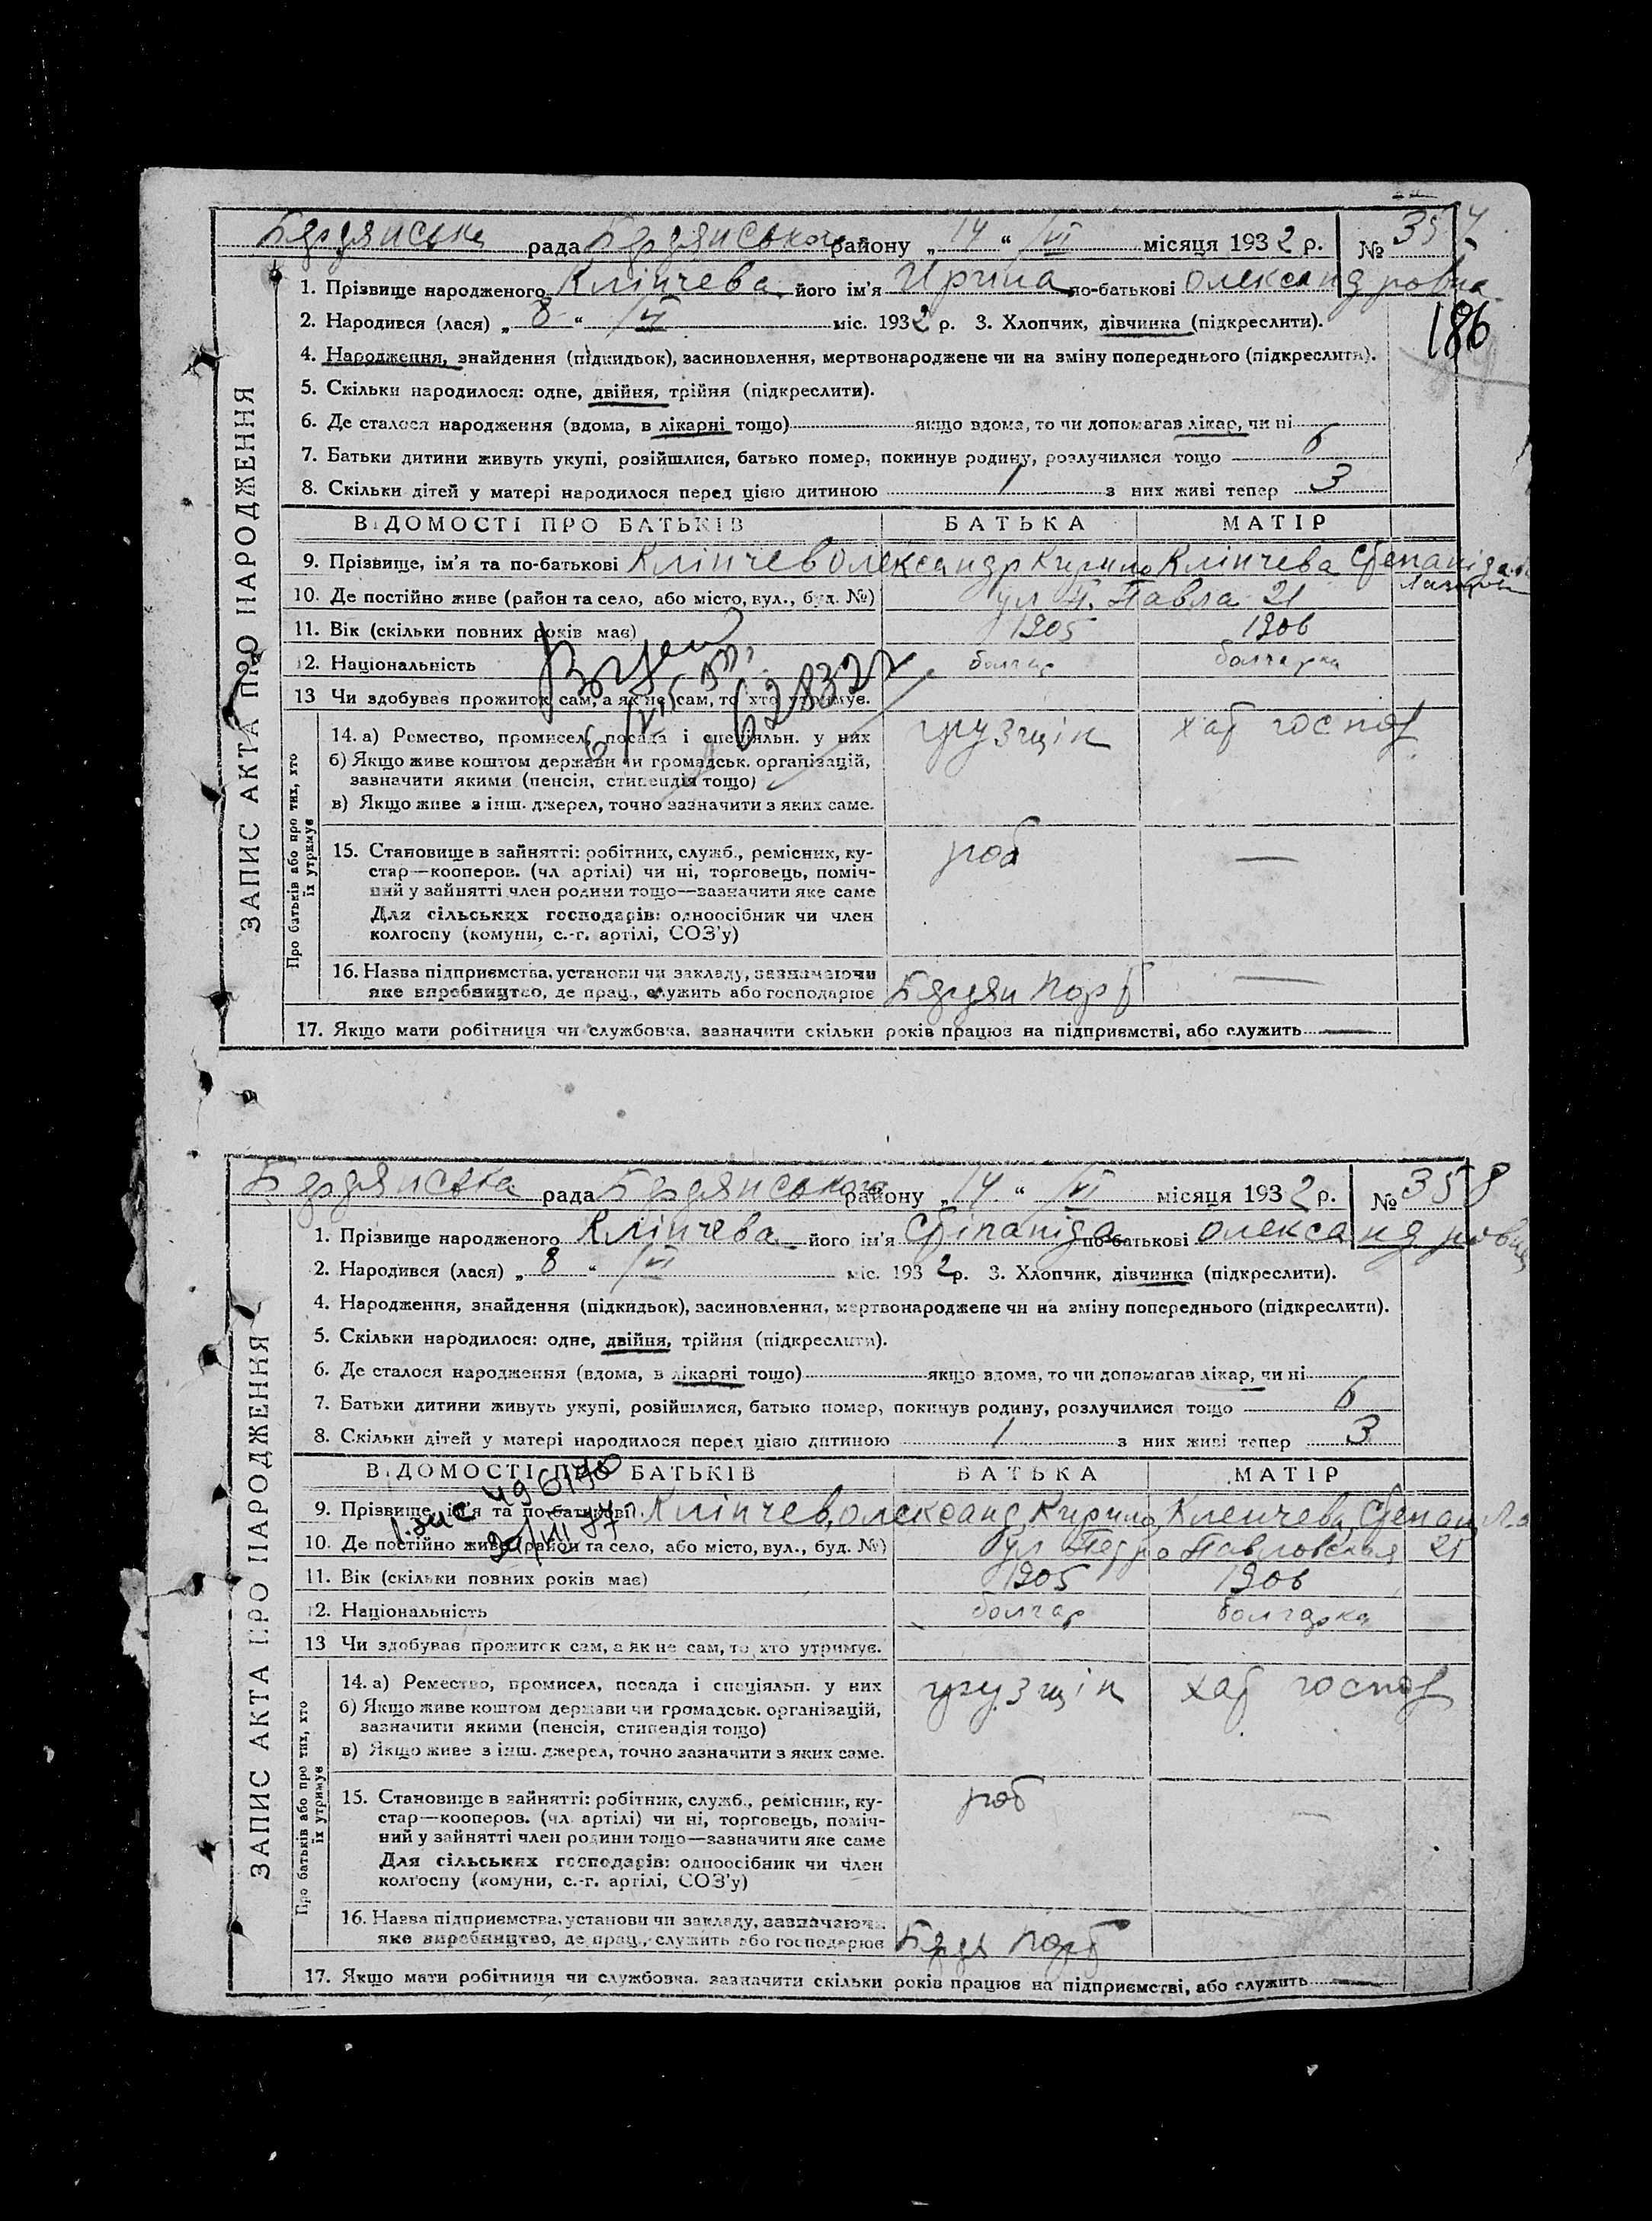 Бердянська рада Бердянського району „14“ VI місяця 1932 р. № 357
1. Прізвище народженого Клінчева його ім'я Ирина по-батькові Олександровна
186
2. Народився (лася) „8“ VI міс. 1932 р. 3. Хлопчик, дівчинка (підкреслити).
4. Народження, знайдення (підкидьок), засиновлення, мертвонароджене чи на зміну попереднього (підкреслити).
5. Скільки народилося: одне, двійня, трійня (підкреслити).
6. Де сталося народження (вдома, в лікарні тощо) якщо вдома, то чи допомагав лікар, чи ні
7. Батьки дитини живуть укупі, розійшлися, батько помер, покинув родину, розлучилися тощо
8. Скільки дітей у матері народилося перед цією дитиною 1 з них живі тепер 3
ЗАПИС АКТА ПРО НАРОДЖЕННЯ
ВІДОМОСТІ ПРО БАТЬКІВ БАТЬКА МАТІР
9. Прізвище, ім'я та по-батькові Клінчев Олександр Кирило Клінчева Степаніда
10. Де постійно живе (район та село, або місто, вул., буд. №) ул П. Павла 21
11. Вік (скільки повних років має) 1905 1906
12. Національність болгар болгарка
13 Чи здобуває прожиток сам, а як не сам, то хто утримує.
628322
Про батьків або про тих, хто їх утримує
14. а) Ремество, промисел, посада і спеціяльн. у них грузчік хат господ
б) Якщо живе коштом держави чи громадськ. організацій,
зазначити якими (пенсія, стипендія тощо)
в) Якщо живе з інш. джерел, точно зазначити з яких саме.
15. Становище в зайнятті: робітник, служб., ремісник, ку- роб —
стар—кооперов. (чл артілі) чи ні, торговець, поміч-
ний у зайнятті член родини тощо—зазначити яке саме
Для сільських господарів: одноосібник чи член
колгоспу (комуни, с.-г. артілі, СОЗ'у)
16. Назва підприємства, установи чи закладу, зазначаючи
яке виробництво, де прац., служить або господарює Бердян Порт —
17. Якщо мати робітниця чи службовка, зазначити скільки років працює на підприємстві, або служить —
Бердянська рада Бердянського району „14“ VI місяця 1932 р. № 358
1. Прізвище народженого Клінчева його ім'я Стіпаніда по-батькові Олександровна
2. Народився (лася) „8“ VI міс. 1932 р. 3. Хлопчик, дівчинка (підкреслити).
4. Народження, знайдення (підкидьок), засиновлення, мертвонароджене чи на зміну попереднього (підкреслити).
5. Скільки народилося: одне, двійня, трійня (підкреслити).
6. Де сталося народження (вдома, в лікарні тощо) якщо вдома, то чи допомагав лікар, чи ні
7. Батьки дитини живуть укупі, розійшлися, батько помер, покинув родину, розлучилися тощо
8. Скільки дітей у матері народилося перед цією дитиною 1 з них живі тепер 3
ЗАПИС АКТА ПРО НАРОДЖЕННЯ
ВІДОМОСТІ ПРО БАТЬКІВ БАТЬКА МАТІР
9. Прізвище, ім'я та по-батькові Клінчев, Олександ, Кирило, Кленчева, Степан
10. Де постійно живе (район та село, або місто, вул., буд. №) ул Петро Павловская 21
11. Вік (скільки повних років має) 1905 1906
12. Національність болгар болгарка
13 Чи здобуває прожиток сам, а як не сам, то хто утримує.
Про батьків або про тих, хто їх утримує
14. а) Ремество, промисел, посада і спеціяльн. у них грузщік хат господ
б) Якщо живе коштом держави чи громадськ. організацій,
зазначити якими (пенсія, стипендія тощо)
в) Якщо живе з інш. джерел, точно зазначити з яких саме.
15. Становище в зайнятті: робітник, служб., ремісник, ку- роб —
стар—кооперов. (чл. артілі) чи ні, торговець, поміч-
ний у зайнятті член родини тощо—зазначити яке саме
Для сільських господарів: одноосібник чи член
колгоспу (комуни, с.-г. артілі, СОЗ'у)
16. Назва підприємства, установи чи закладу, зазначаючи
яке виробництво, де прац., служить або господарює Бердя Порт
17. Якщо мати робітниця чи службовка, зазначити скільки років працює на підприємстві, або служить —